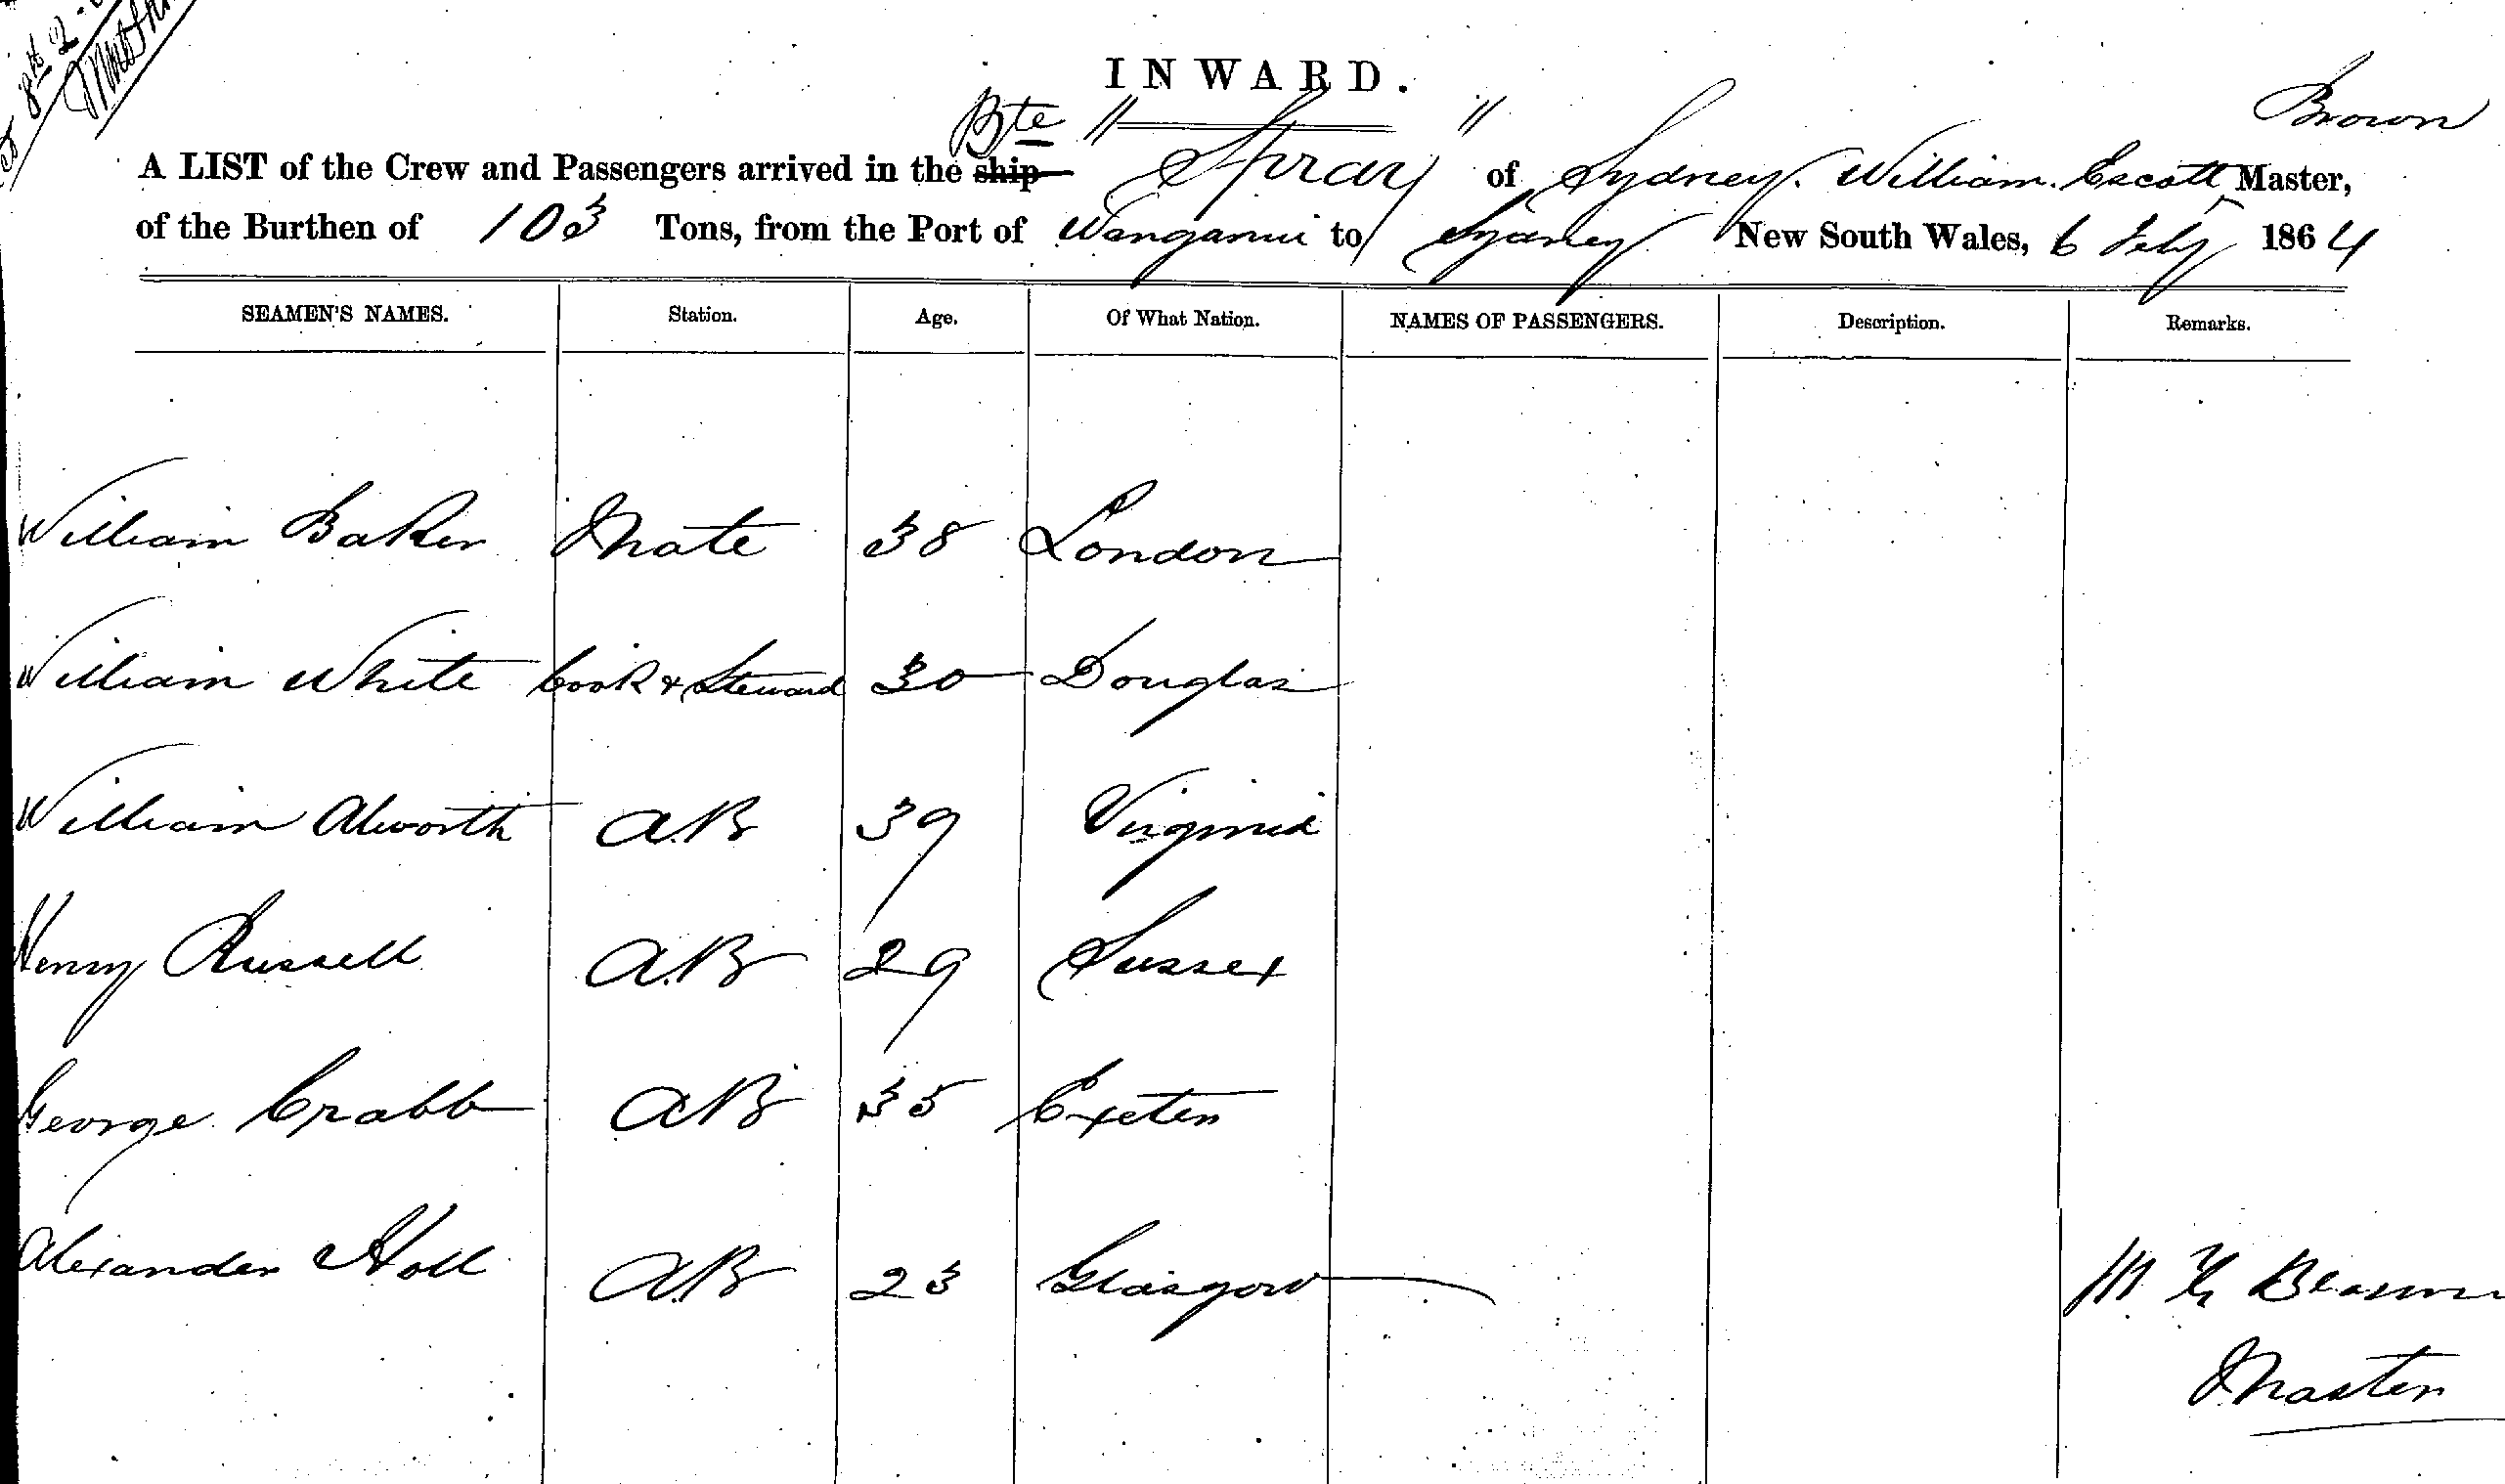 8th 2
INWARD.
Brown
Bte
A LIST of the Crew and Passengers arrived in the ship "Spray" of Sydney. William. Escott Master,
of the Burthen of 103 Tons, from the Port of Wanganui to Sydney New South Wales, 6 Feby 1864
SEAMEN'S NAMES. Station. Age. Of What Nation. NAMES OF PASSENGERS. Description. Remarks.
William Baker Mate 38 London
William White Cook & Steward 30 Douglas
William Alworth A.B 39 Virginia
Henry Russell A.B 29 Sussex
George Crabb AB 35 Exeter
Alexander Holl A.B 23 Glasgow
Brown
Master